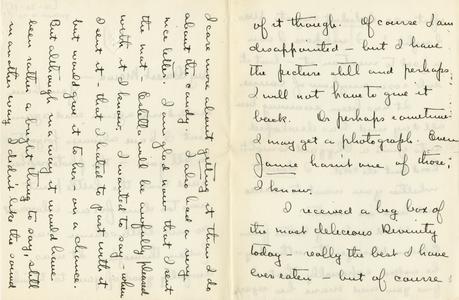 of it though. Of course I am
disappointed - but I have
the picture still and perhaps
I will not have to give it
back. Or perhaps sometime
I may get a photograph. Even
Jamie hasn't one of those;
I know.
I received a big box of
the most delicious Divinity
today - really the best I have
ever eaten - but of course
I care more about getting it than I do
about the candy. I also had a very
nice letter. I am glad now that I sent
the mat. Estella will be awfully pleased
with it I know. I wanted to say - when
I sent it - that I hated to part with it
but would give it to her on a chance.
But although in a way it would have
been rather a bright thing to say, still
in another way I didn't like the sound